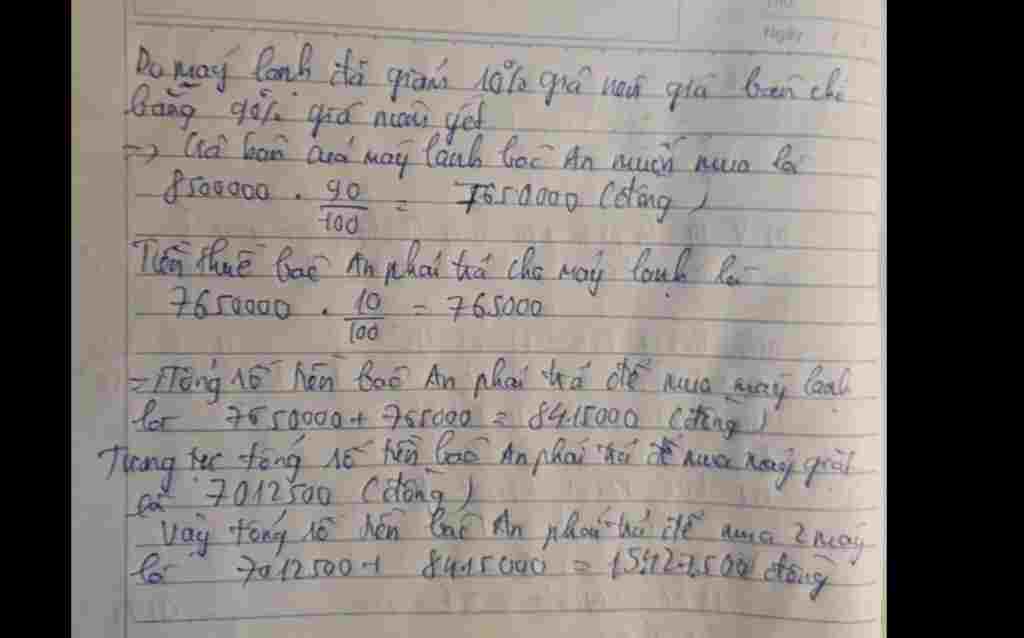 Ngày
Do máy lạnh đã giảm 10% giá nên giá bán chỉ
bằng 90% giá niêm yết
=> Giá bán của máy lạnh bác An muốn mua là
8500000 . 90/100 = 7650000 (đồng)
Tiền thuế bác An phải trả cho máy lạnh là
7650000 . 10/100 = 765000
=> Tổng số tiền bác An phải trả để mua máy lạnh
là 7650000 + 765000 = 8415000 (đồng)
Tương tự tổng số tiền bác An phải trả để mua máy giặt
là 7012500 (đồng)
Vậy tổng số tiền bác An phải trả để mua 2 máy
là 7012500 + 8415000 = 15427500 đồng